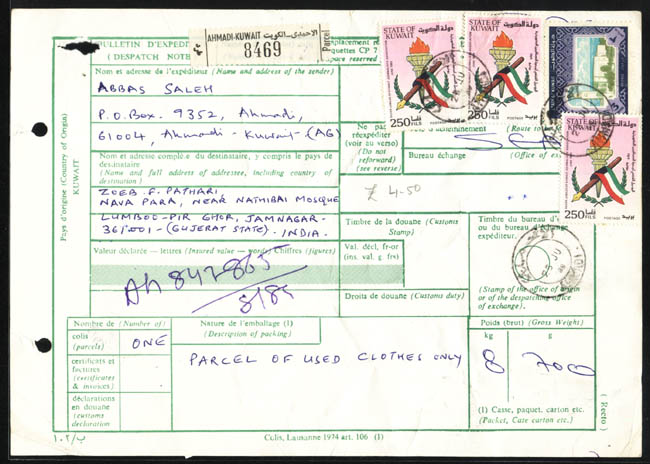 BULLETIN D'EXPEDI
(DESPATCH NOTE
AHMADI-KUWAIT الاحمدي - الكويت
8469
Parcel
replacement re
quettes CP 7
pace reserved
STATE OF KUWAIT
دولة الكويت
250 FILS
POSTAGE
STATE OF KUWAIT
دولة الكويت
250 FILS
POSTAGE
STATE OF KUWAIT
دولة الكويت
250 FILS
POSTAGE
Pays d'origine (Country of Origin)
KUWAIT
Nom et adresse de l'expéditeur (Name and address of the sender)
ABBAS SALEH
P.O.Box. 9352, Ahmadi,
61004, Ahmadi - Kuwait - (AG)
Nom et adresse complète du destinataire, y compris le pays de
destination
(Name and full address of addressee, including country of
destination)
ZOEB. F. PATHARI,
NAVA PARA, NEAR NATHIBAI MOSQUE
LUMBOO-PIR GHOR, JAMNAGAR-
361001-(GUJERAT STATE). INDIA.
Ne pas
réexpédier
(voir au verso)
(Do not
reforward)
(see reverse)
d'acheminement (Route
Bureau échange (Office of ex
£ 4-50
Valeur déclarée — lettres (Insured value — words) Chiffres (figures)
Ah 847865
8/85
Timbre de la douane (Customs
Stamp)
Val. décl, fr-or
(ins. val. g frs)
Droits de douane (Customs duty)
Timbre du bureau d'o
ou du bureau d'échange
expéditeur.
(Stamp of the office of origin
or of the despatching office
of exchange).
Nombre de (Number of)
colis
(parcels)
ONE
certificats et
factures
(certificates
& invoices)
déclarations
en douane
(customs
declaration)
Nature de l'emballage (1)
(Description of packing)
PARCEL OF USED CLOTHES ONLY
Poids (brut) (Gross Weight)
kg
g
8
700
(1) Casse, paquet, carton etc.
(Packet, Case carton etc.)
(Recto)
١٠٢/ب
Colis, Lausanne 1974 art. 106 (1)